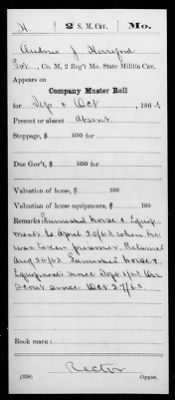 H. 2 S. M. Cav. Mo.
Andrew J. Hereford
Pvt., Co. M, 2 Reg't Mo. State Militia Cav.
Appears on
Company Muster Roll
for Sep. & Oct, 1863
Present or absent Absent
Stoppage, $ 100 for
Due Gov't, $ 100 for
Valuation of horse, $ 100
Valuation of horse equipments, $ 100
Remarks: Furnished horse & Equip-
ments to April 20/63 when he
was taken prisoner. Returned
Aug 26/63 Furnished horse &
Equipments since Sept 1/63 On
Scout since Oct 27/63.
Book mark:
(358) Copyist.